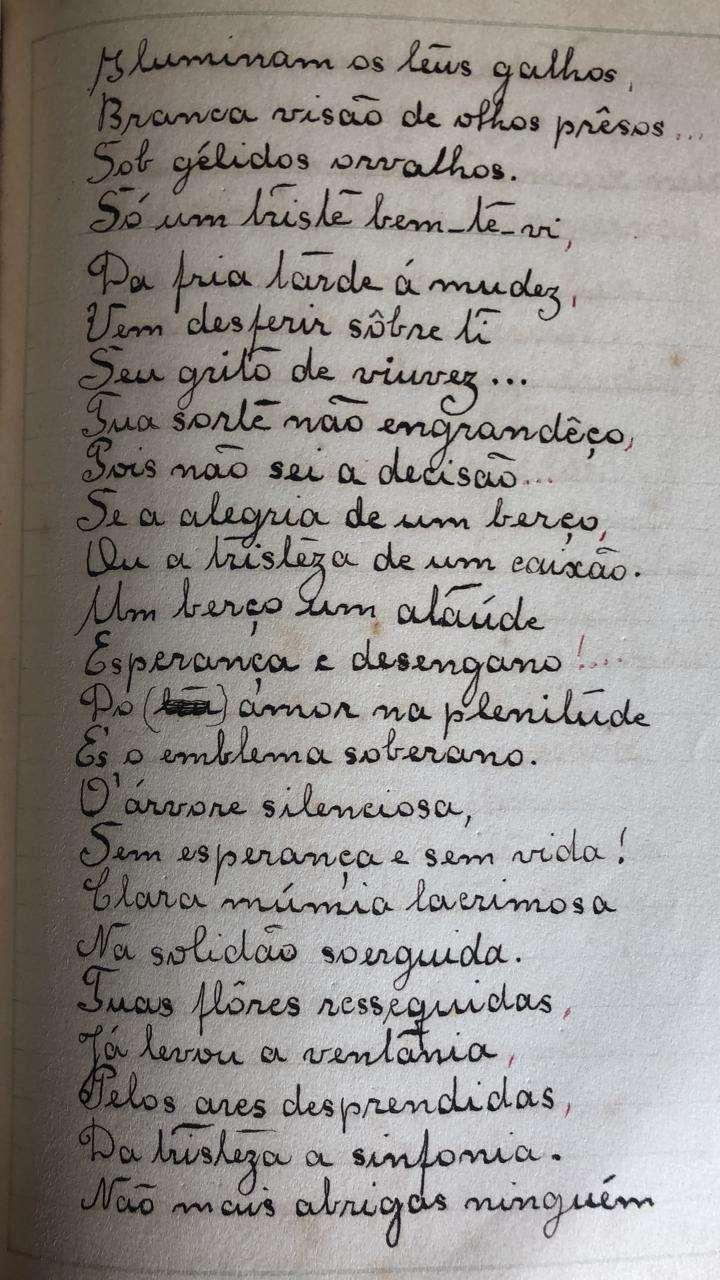 Iluminam os teus galhos,
Branca visão de olhos prêsos...
Sob gélidos orvalhos.
Só um triste bem-te-vi,
Da fria tarde á mudez,
Vem desferir sôbre ti
Seu grito de viuvez...
Tua sorte não engrandêço,
Pois não sei a decisão...
Se a alegria de um berço,
Ou a tristeza de um caixão.
Um berço um ataúde
Esperança e desengano!....
Do () amor na plenitude
És o emblema soberano.
O' árvore silenciosa,
Sem esperança e sem vida!
Clara múmia lacrimosa
Na solidão soerguida.
Tuas flôres resseguidas,
Já levou a ventania,
Pelos ares desprendidas,
Da tristeza a sinfonia.
Não mais abrigas ninguém